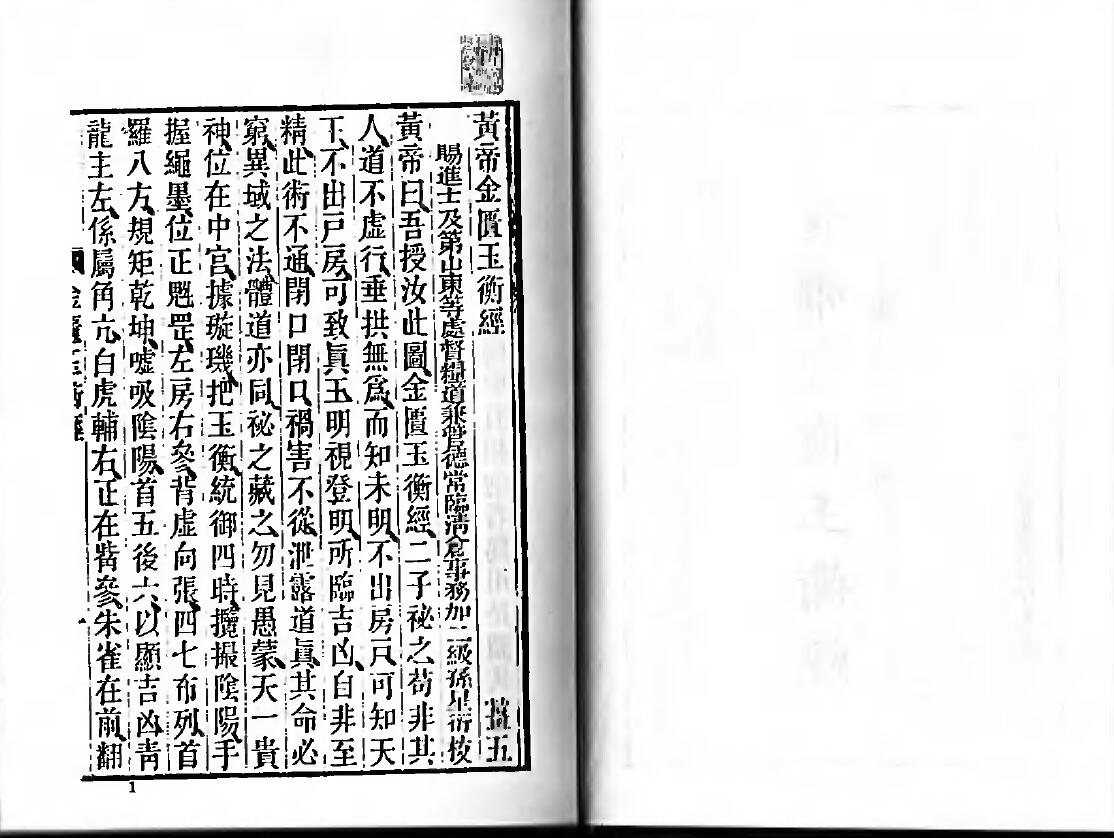 黃帝金匱玉衡經 五
賜進士及第山東等處督糧道兼管德常臨清倉事務加二級孫星衍校
黃帝曰吾授汝此圖金匱玉衡經二子祕之苟非其
人道不虛行垂拱無爲而知未明不出房戶可知天
下不出戸房可致眞玉明視登明所臨吉凶自非至
精此術不通閉口閉口禍害不從泄露道眞其命必
窮異域之法體道亦同祕之藏之勿見愚蒙天一貴
神位在中宮據璇璣把玉衡統御四時攬撮陰陽手
握繩墨位正魁罡左房右參背虛向張四七布列首
羅八方規矩乾坤噓吸陰陽首五後六以顯吉凶靑
龍主左係屬角亢白虎輔右正在觜參朱雀在前翻
金匱玉衡經 一
1